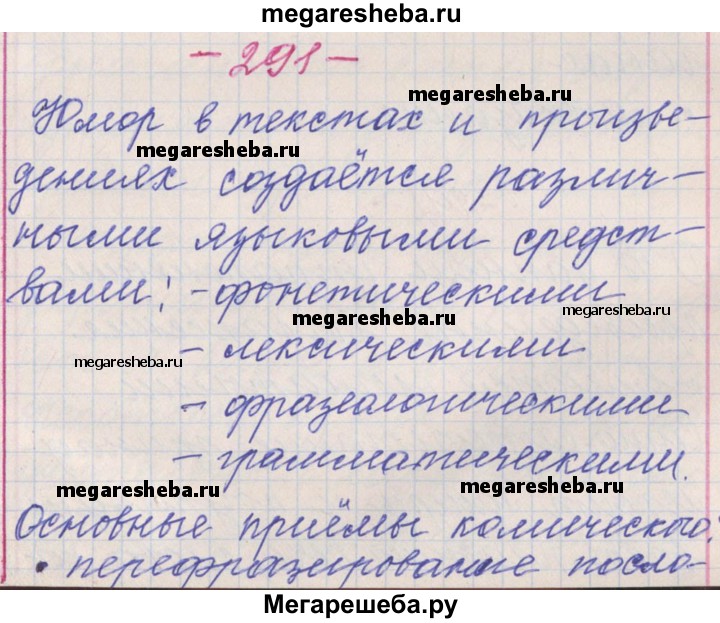 megaresheba.ru
- 291 -
megaresheba.ru
Юмор в текстах и произве-
megaresheba.ru
дениях создаётся различ-
ными языковыми средст-
вами: - фонетическими
megaresheba.ru
megaresheba.ru
- лексическими
megaresheba.ru
- фразеологическими
- грамматическими.
megaresheba.ru
megaresheba.ru
Основные приёмы комического:
• перефразирование посло-
Мегарешеба.ру